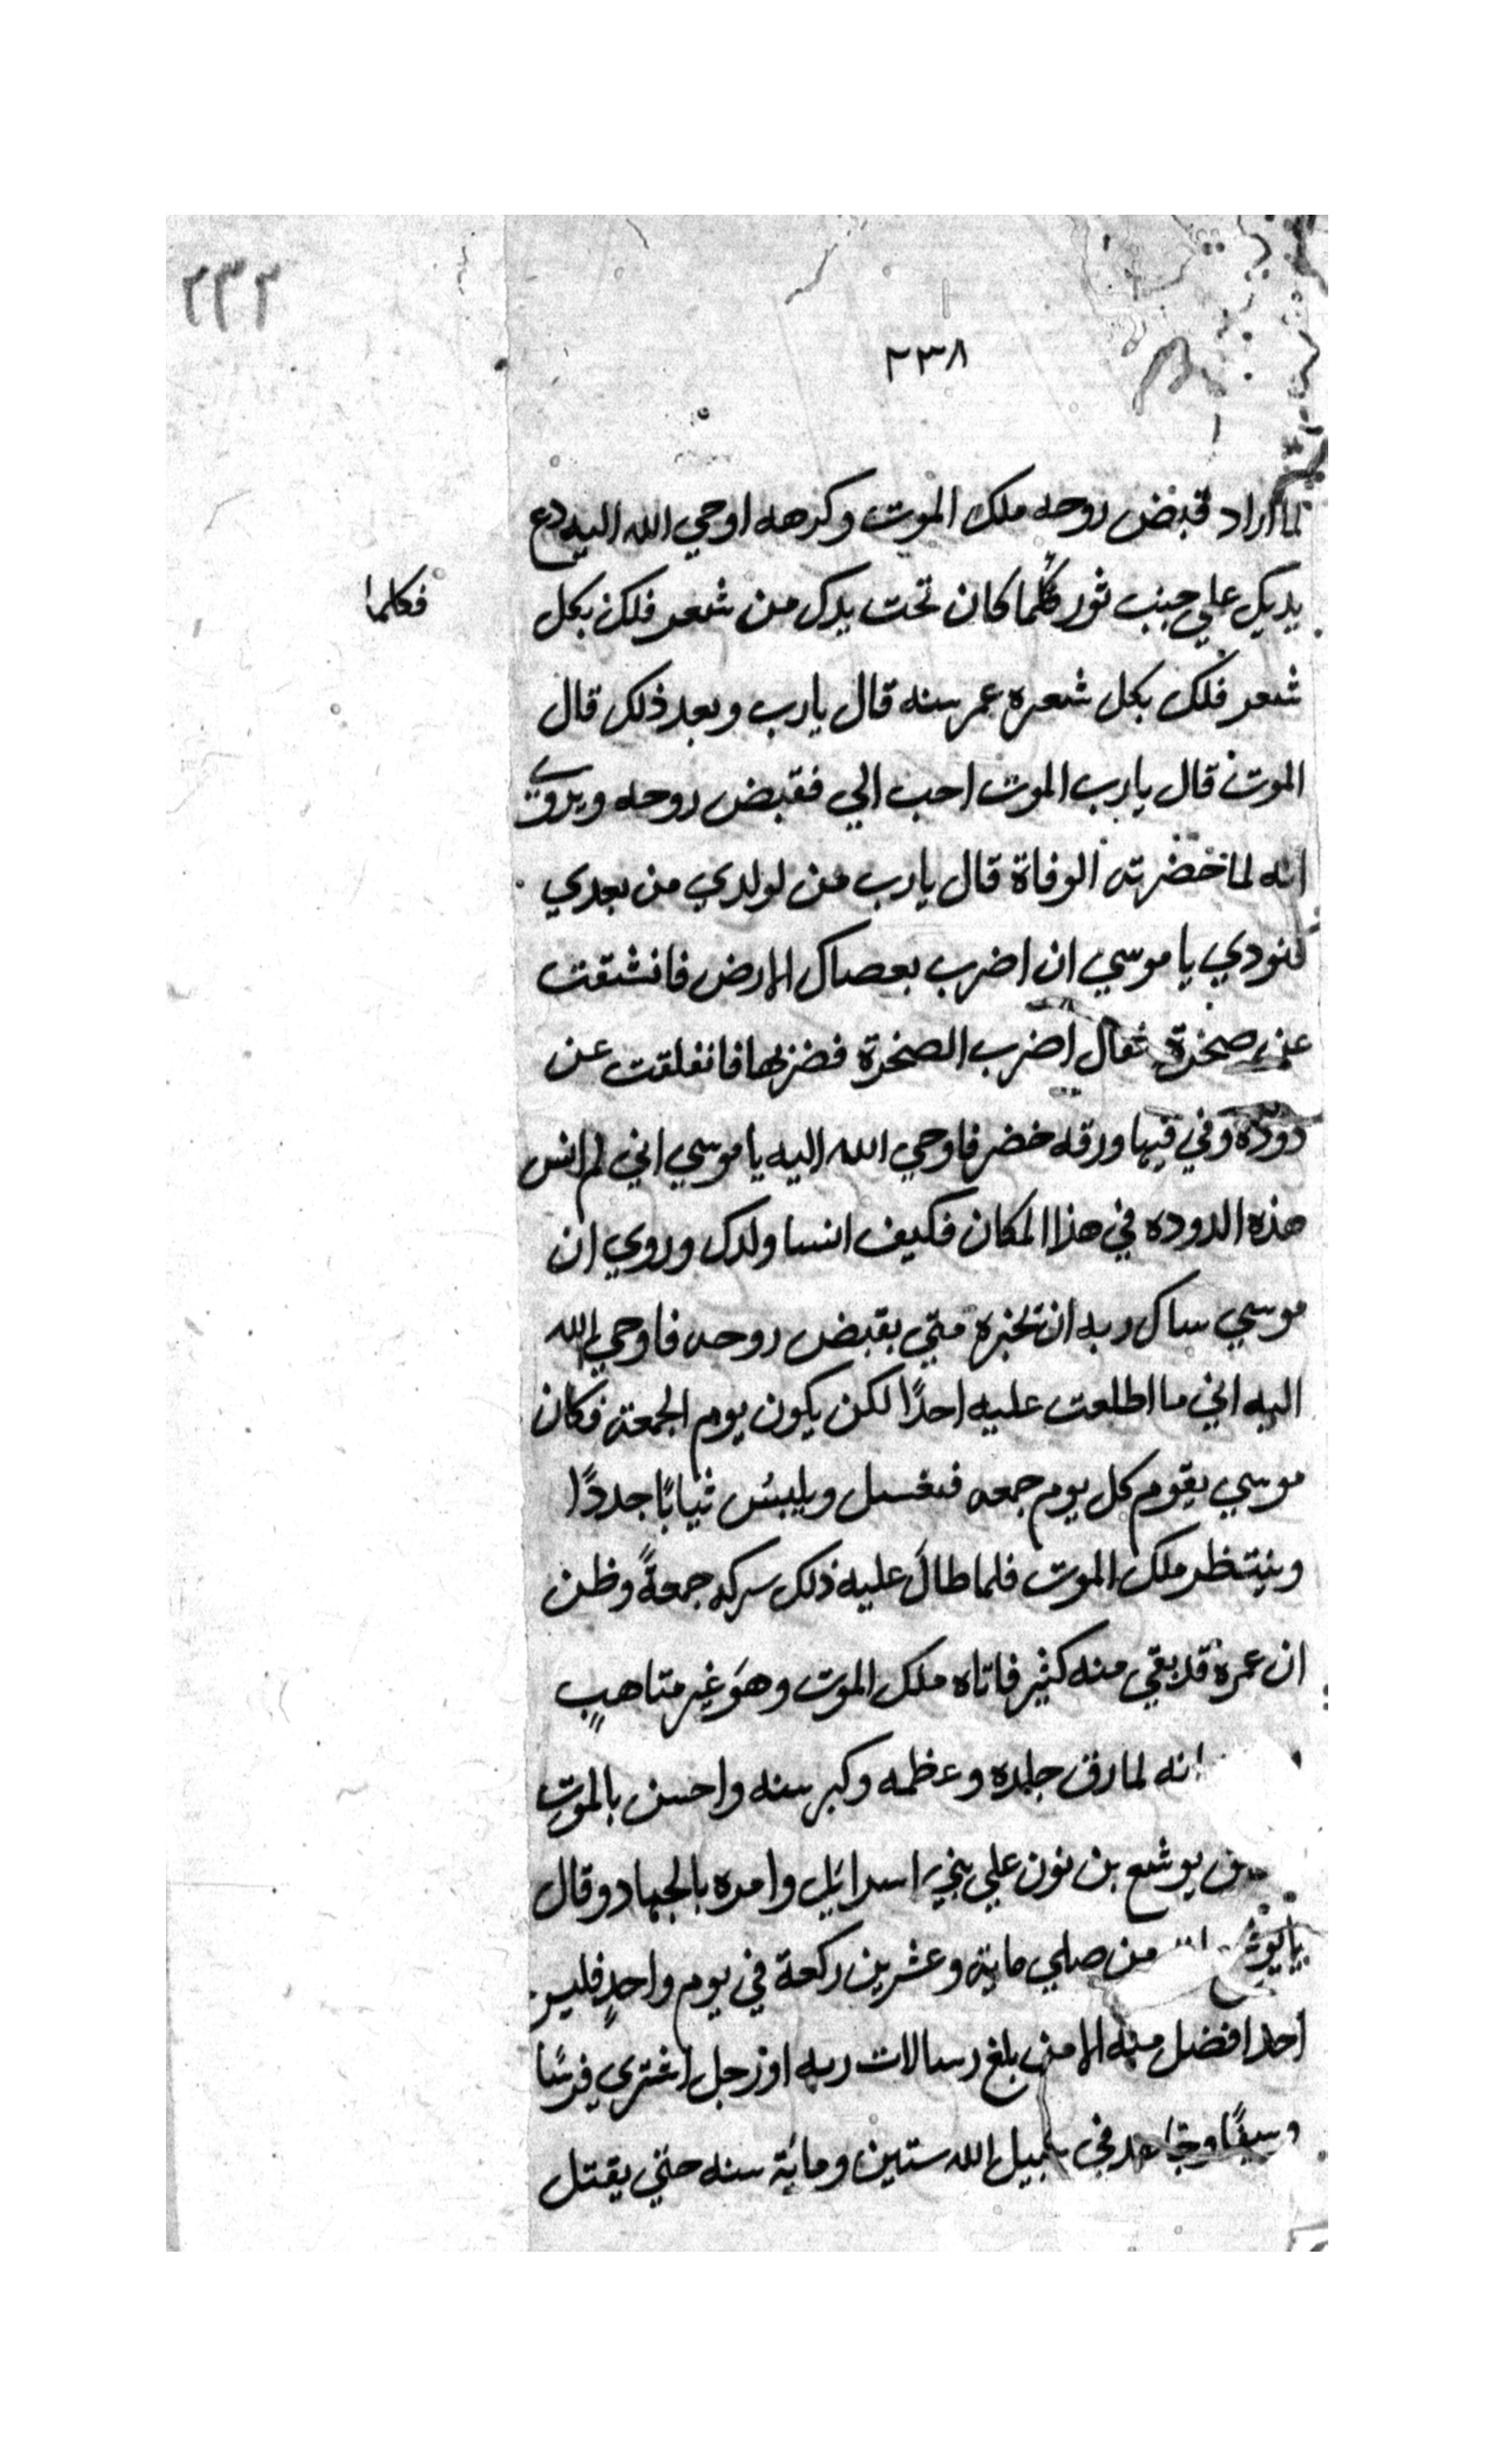 ٢٣٢
٢٣٨
لما اراد قبض روحه ملك الموت وكرهه اوحي الله اليه دع
يديك علي جنب ثور فكلما كان تحت يدك من شعر فلك بكل
فكلما
شعر فلك بكل شعره عمر سنه قال يارب وبعد ذلك قال
الموت قال يارب الموت احب الي فقبض روحه ويروي
انه لما حضرته الوفاة قال يارب من لولدي من بعدي
فنودي يا موسي ان اضرب بعصاك الارض فانشقت
عن صخرة فقال اضرب الصخرة فضربها فانفلقت عن
دوده وفي فيها ورقه خضر فاوحي الله اليه يا موسي اني لم انس
هذه الدوده في هذا المكان فكيف انسا ولدك وروي ان
موسي سال ربه ان يخبره متي يقبض روحه فاوحي الله
اليه اني ما اطلعت عليه احدًا لكن يكون يوم الجمعة فكان
موسي يقوم كل يوم جمعه فيغسل ويلبس ثيابًا جددًا
وينتظر ملك الموت فلما طال عليه ذلك تركه جمعةً وظن
ان عمره قد بقي منه كثير فاتاه ملك الموت وهو غير متاهب
انه لما رق جلده وعظمه وكبر سنه واحس بالموت
يوشع بن نون علي بني اسرائيل وامره بالجهاد وقال
من صلي ماية وعشرين ركعة في يوم واحدٍ فليس
احدا افضل منه الا من بلغ رسالات ربه او رجل اشتري فرسًا
وسيفًا وجاهد في سبيل الله ستين ومائة سنه حتي يقتل